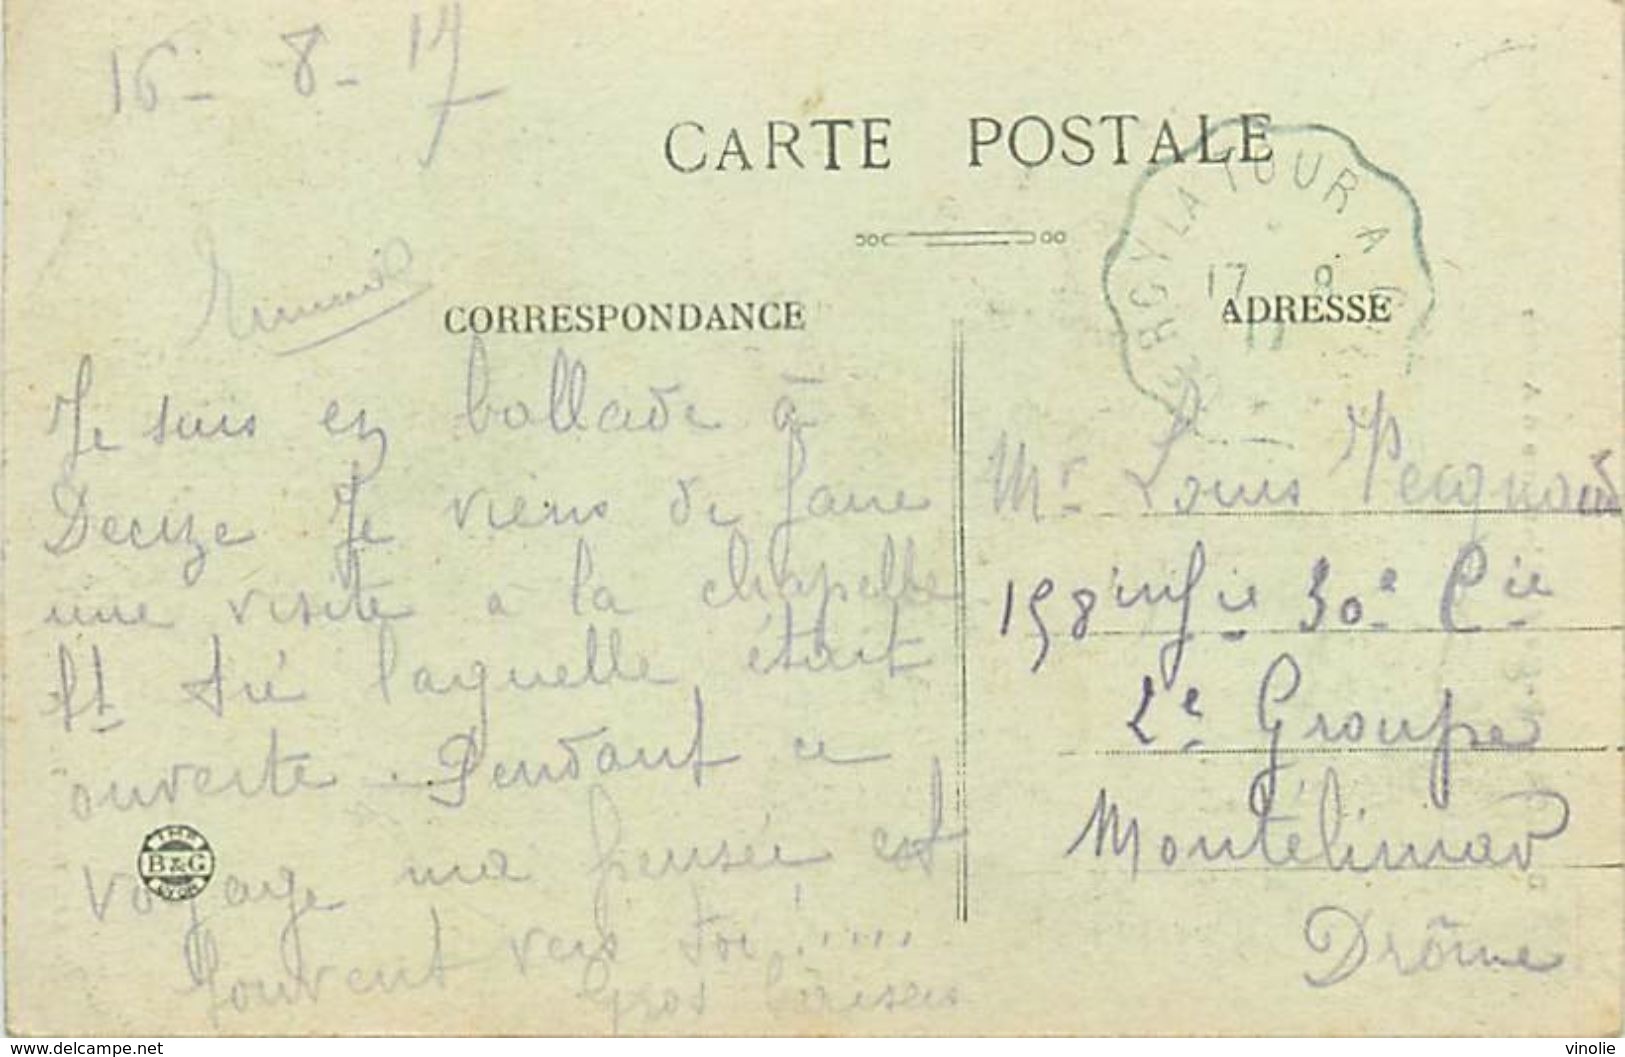 16-8-17
CARTE POSTALE
ERCY LA TOUR A
17 8
17
CORRESPONDANCE
ADRESSE
Je suis en ballade à
Decize Je viens de faire
une visite à la chapelle
St Sié laquelle était
ouverte. Pendant ce
voyage ma pensée est
souvent vers toi! ....
Gros baisers
Mr Louis
158 infie 30e Cie
2e Groupe
Montélimar
Drôme
IMP
B&G
LYON
www.delcampe.net
vinolie